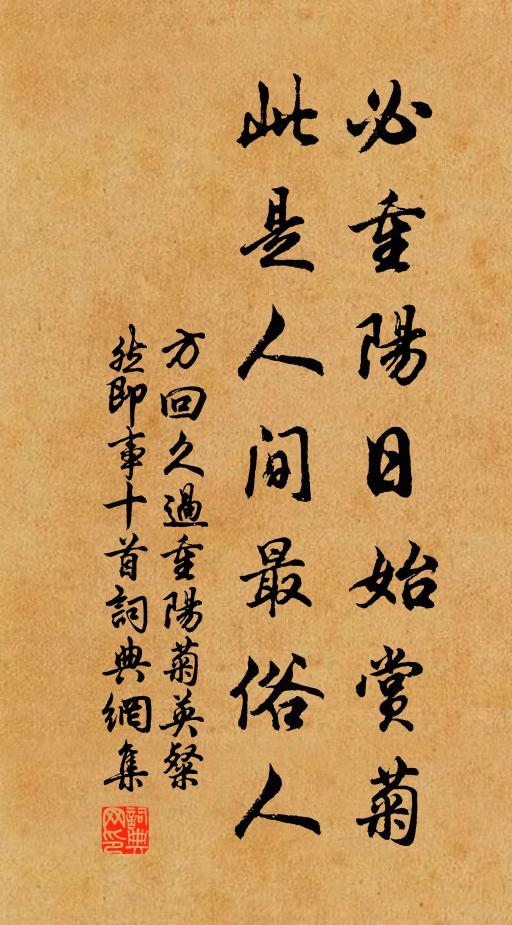 必重陽日始賞菊
此是人間最俗人
方回久過重陽菊英粲
然即事十首詞典網集
詞典网印